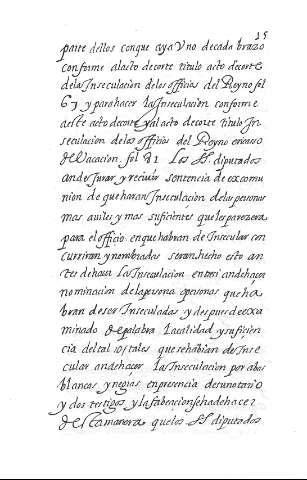 15
parte dellos con que aya Uno de cada brazo
conforme al acto de corte titulo acto de corte
de la Inseculacion de los officios del Reyno fol
67 y para hacer la Inseculacion conforme
a este acto de corte y al acto de corte titulo In
seculacion de los officios del Reyno en caso
de Vacacion. fol 81 Los SS. diputados
an de Jurar y recivir sentencia de excomu
nion de que haran Inseculacion de las personas
mas aviles y mas suficientes que les parezera
para el officio en que habran de Insecular con
currir an y nombradas seran hecho esto an
tes de hacer la Inseculacion entre si an de hacer
nominacion de la persona o personas que ha
bran de ser Inseculadas y despues de exa
minado de palabra la calidad y suficien
cia del tal o los tales que se habian de Inse
cular an de hacer la Inseculacion por abas
blancas y negras en presencia de su notario
y dos testigos y la fabeacion se ha de hacer
de esta manera que los SS diputados